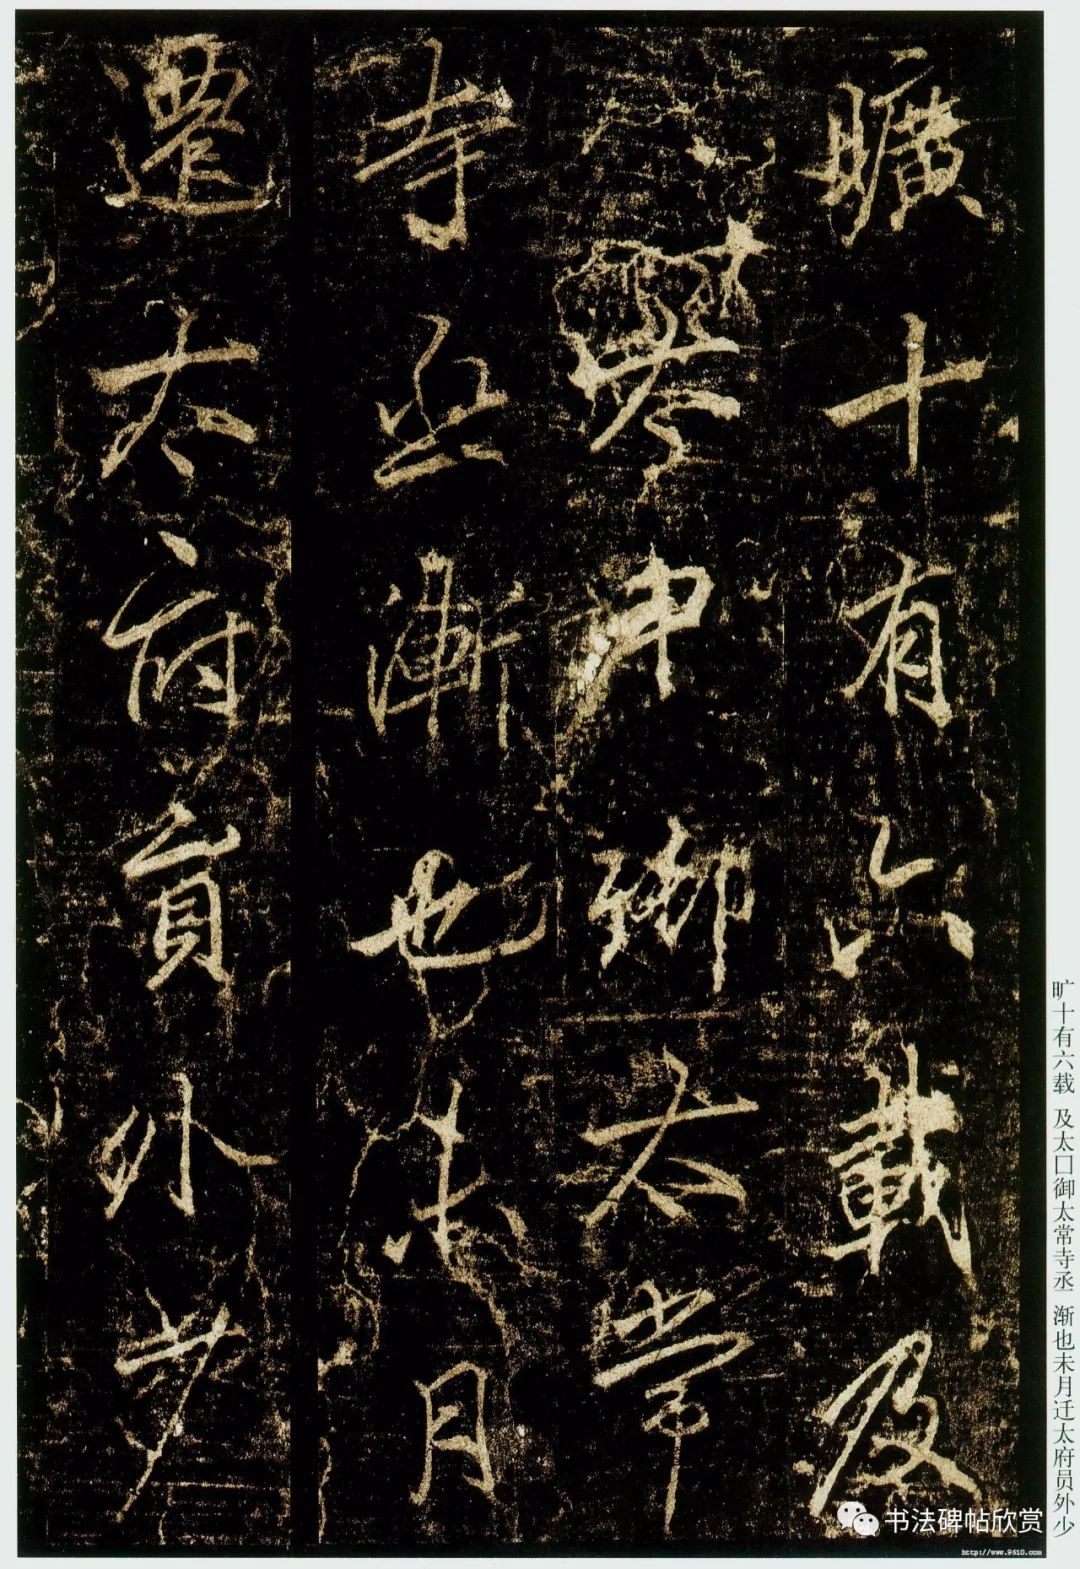 曠十有六載及
中御太常
寺丞漸也未月
遷太府員外少
旷十有六载 及太口御太常寺丞 渐也未月迁太府员外少
书法碑帖欣赏
http://www.9610.com